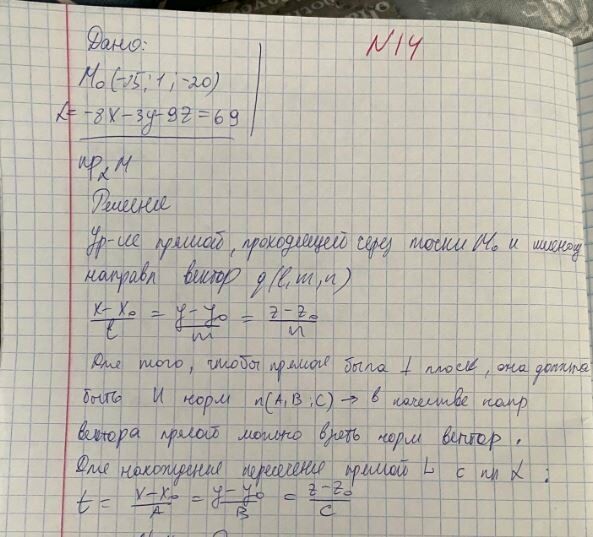 Дано:
N14
M₀(-15; 1; -20)
α = -8x-3y-9z=69
пр_α M
Решение
Ур-ие прямой, проходящей через точки M₀ и имеющ
направл вектор q(l, m, n)
(x-x₀)/l = (y-y₀)/m = (z-z₀)/n
Для того, чтобы прямая была ⊥ плоск, она должна
быть || норм n(A, B; C) → в качестве напр
вектора прямой можно взять норм вектор.
Для нахождение пересечение прямой L с пл α:
t = (x-x₀)/A = (y-y₀)/B = (z-z₀)/C